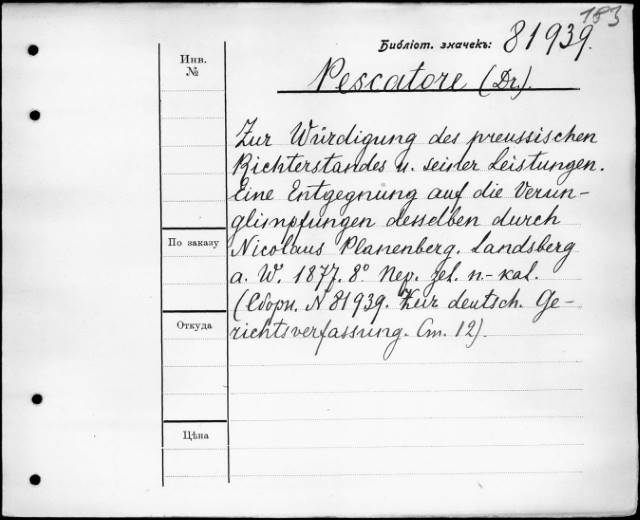 183
Библіот. значекъ: 81939.
Инв.
№
Pescatore (Dr.).
Zur Würdigung des preussischen
Richterstandes u. seiner Leistungen.
Eine Entgegnung auf die Verun-
glimpfungen desselben durch
По заказу
Nicolaus Planenberg. Landsberg
a. W. 1877. 8° Пер. zel. п-кал.
(Сборн. № 81939. Zur deutsch. Ge-
Откуда
richtsverfassung. Ст. 12).
Цѣна